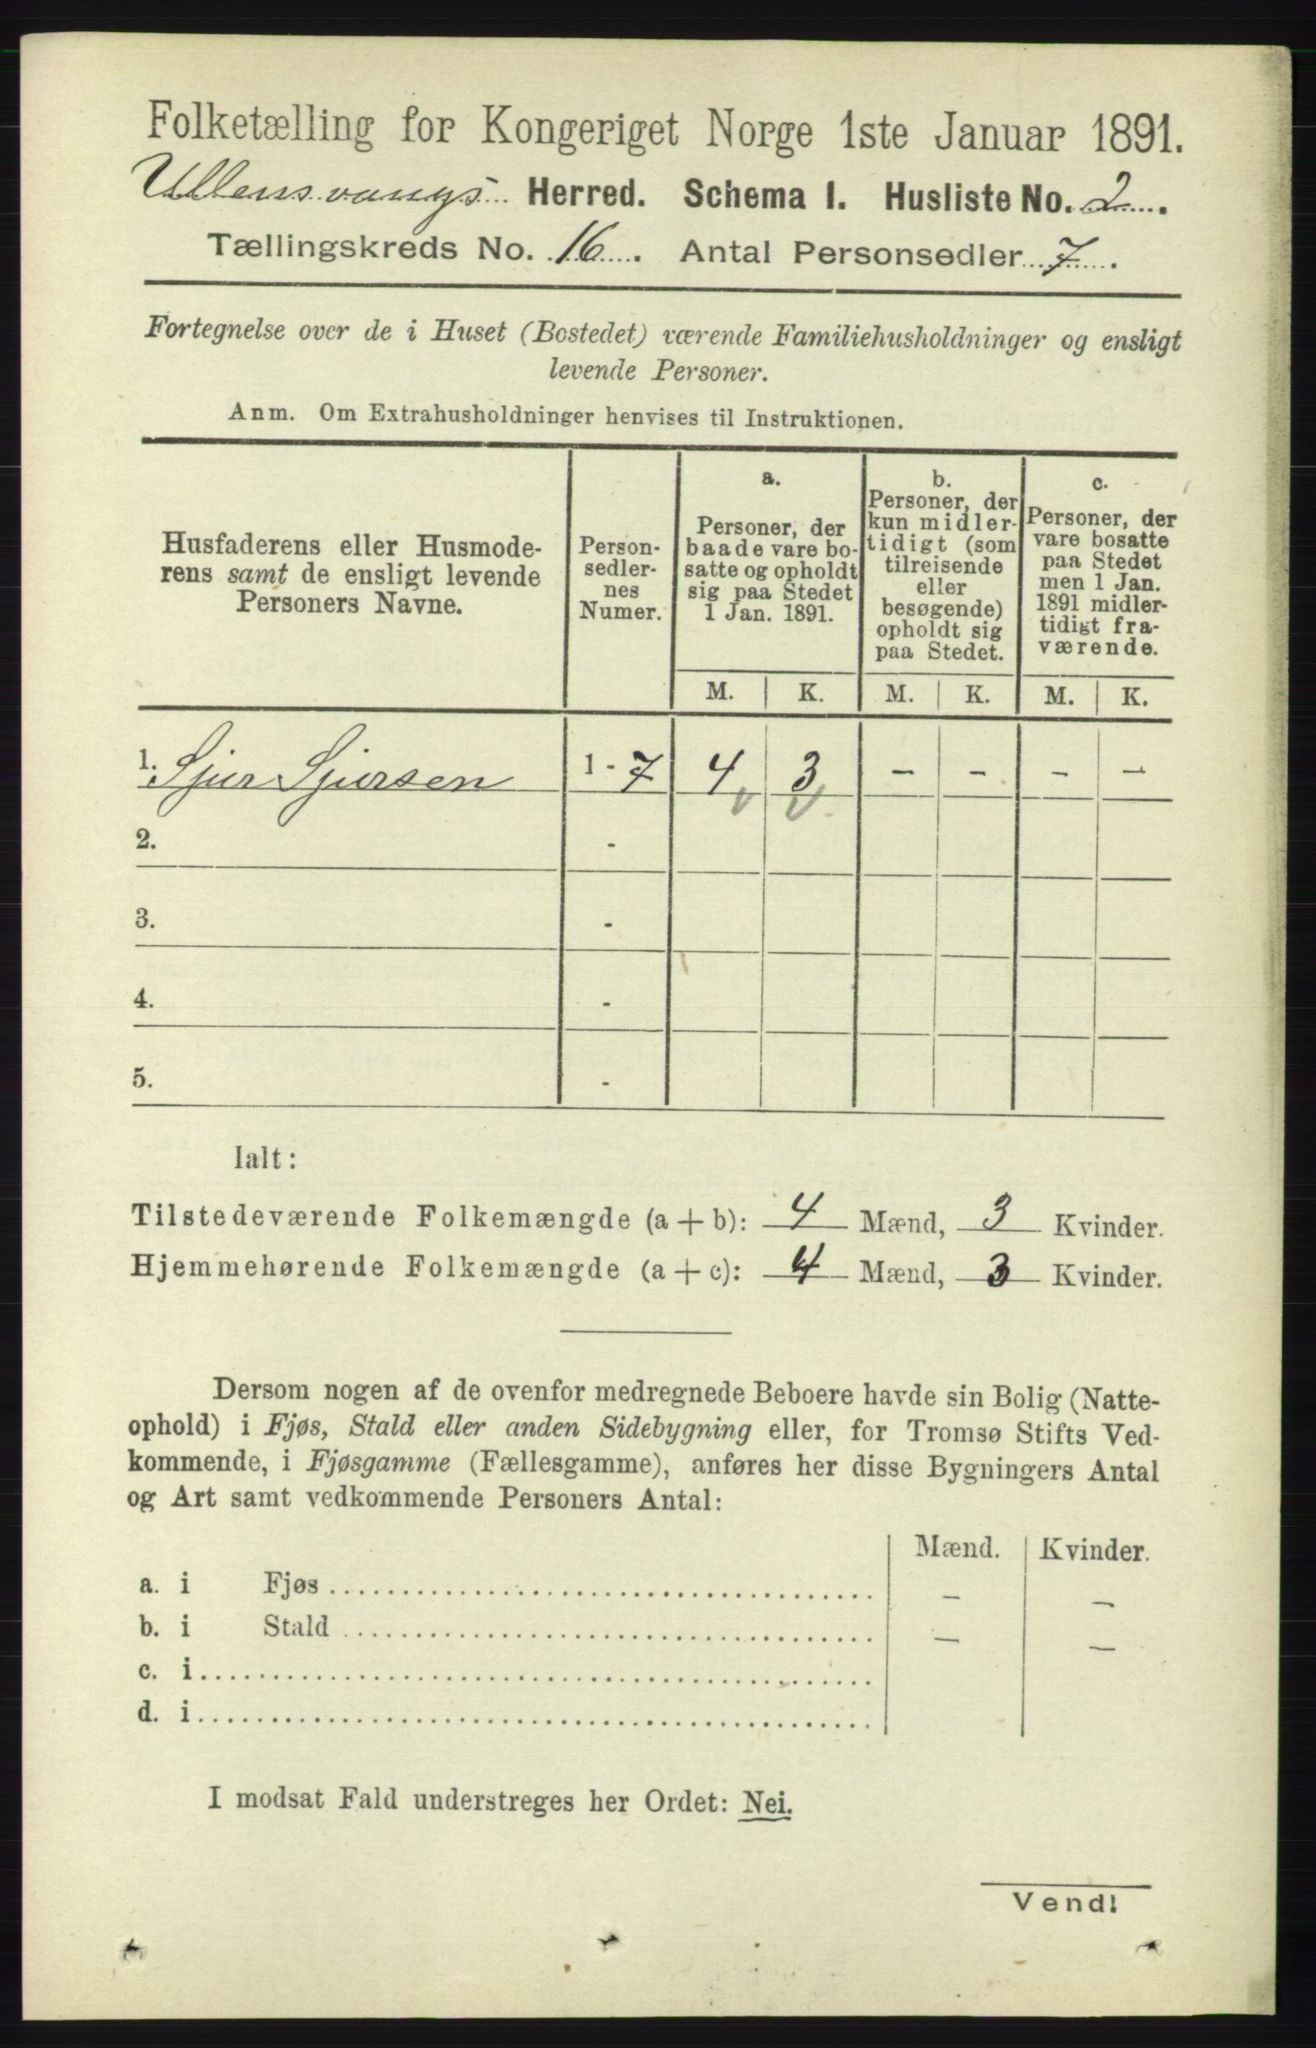 Folketælling for Kongeriget Norge 1ste Januar 1891.
Ullensvangs Herred. Schema I. Husliste No. 2.
Tællingskreds No. 16. Antal Personsedler 7.
Fortegnelse over de i Huset (Bostedet) værende Familiehusholdninger og ensligt
levende Personer.
Anm. Om Extrahusholdninger henvises til Instruktionen.
Husfaderens eller Husmode-
rens samt de ensligt levende
Personers Navne.
Person-
sedler-
nes
Numer.
a.
Personer, der
baade vare bo-
satte og opholdt
sig paa Stedet
1 Jan. 1891.
b.
Personer, der
kun midler-
tidigt (som
tilreisende
eller
besøgende)
opholdt sig
paa Stedet.
c.
Personer, der
vare bosatte
paa Stedet
men 1 Jan.
1891 midler-
tidigt fra-
værende.
M. K. M. K. M. K.
1. Sjur Sjursen 1 - 7 4 3 - - - -
2. -
3. -
4. -
5. -
Ialt:
Tilstedeværende Folkemængde (a + b): 4 Mænd, 3 Kvinder.
Hjemmehørende Folkemængde (a + c): 4 Mænd, 3 Kvinder.
Dersom nogen af de ovenfor medregnede Beboere havde sin Bolig (Natte-
ophold) i Fjøs, Stald eller anden Sidebygning eller, for Tromsø Stifts Ved-
kommende, i Fjøsgamme (Fællesgamme), anføres her disse Bygningers Antal
og Art samt vedkommende Personers Antal:
Mænd. Kvinder.
a. i Fjøs - -
b. i Stald - -
c. i
d. i
I modsat Fald understreges her Ordet: Nei.
Vend!